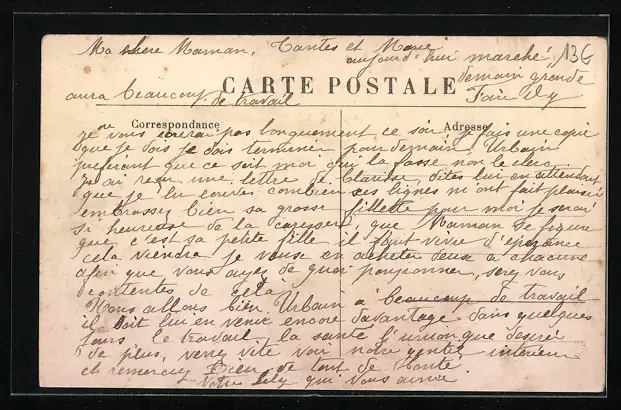 Ma chere Maman, Tantes et Marie
aujourd'hui marché, 136
demain grande
CARTE POSTALE
aura beaucoup de travail
Correspondance Adresse
je ne vous écrirai pas longuement ce soir, je fais une copie
que je dois terminer pour demain Urbain
préférant que ce soit moi qui la fasse non le clerc
J'ai reçu une lettre de Clarisse, dites lui en attendant
que je lui combien ses lignes m'ont fait plaisir
embrassez bien sa grosse fillette pour moi je serai
si heureuse de la caresser, que Maman se figure
que c'est sa petite fille il faut vivre d'espérance
cela viendra je pense en acheter deux à chacune
afin que vous ayez de quoi pouponner, serez vous
contentes de cela,
Nous allons bien Urbain a beaucoup de travail
il doit lui en venir encore davantage dans quelques
jours le travail la santé l'union que
de plus, venez vite voir notre gentil intérieur
et remerciez Dieu de tant de bonté.
Votre Lily qui vous aime